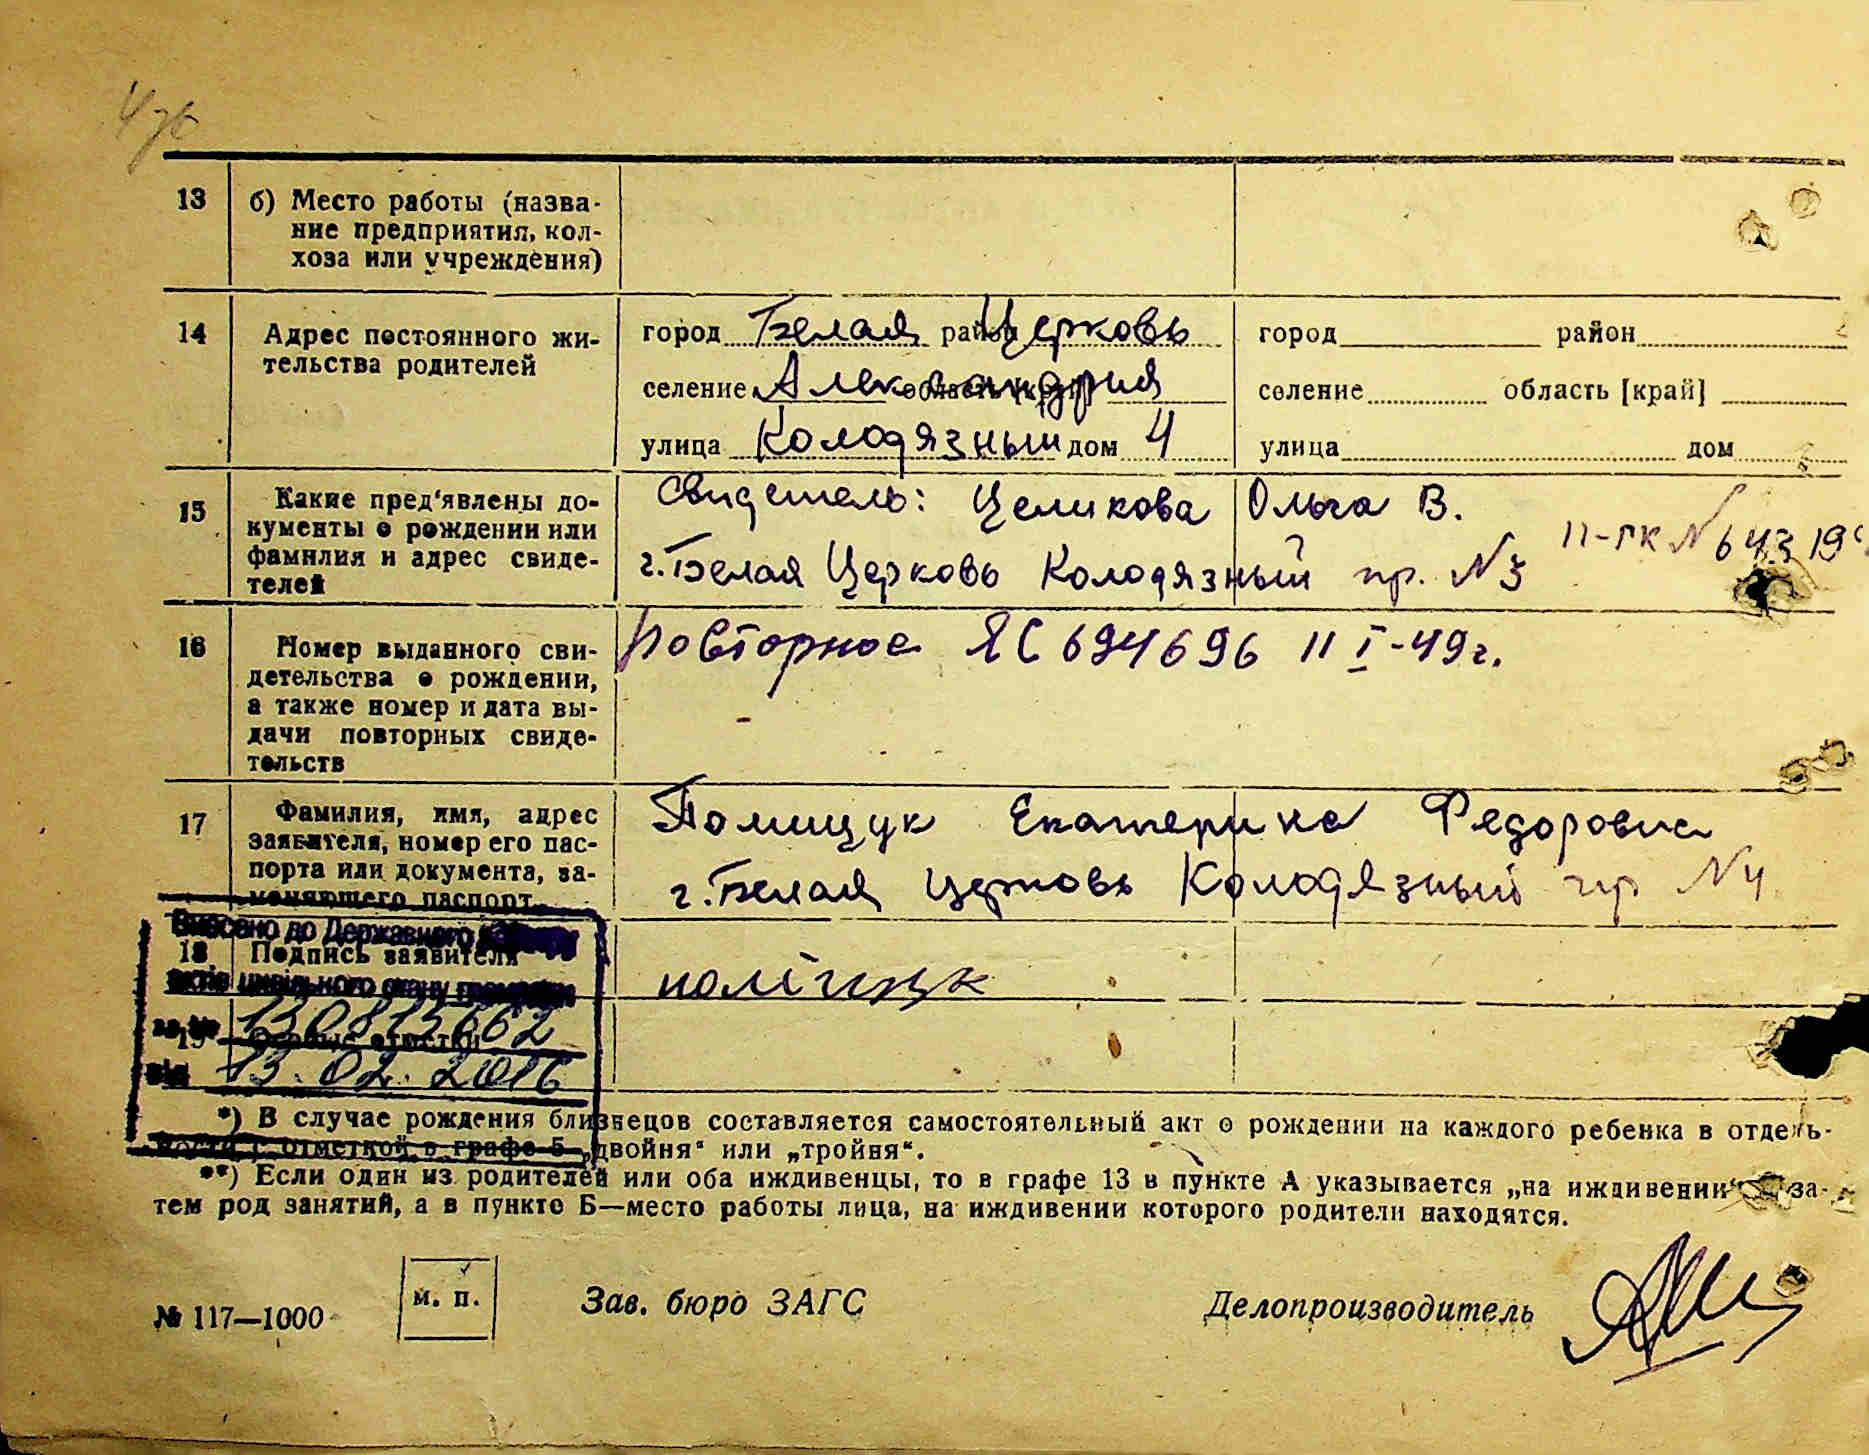 13 б) Место работы (назва-
ние предприятия, кол-
хоза или учреждения)
14 Адрес постоянного жи-
тельства родителей
город Белая район Церковь
селение Александрия область [край]
улица Колодязный дом 4
город район
селение область [край]
улица дом
15 Какие пред'явлены до-
кументы о рождении или
фамилия и адрес свиде-
телей
Свидетель: Целикова Ольга В.
г. Белая Церковь Колодязный пр. №3
II-ГК №
16 Номер выданного сви-
детельства о рождении,
а также номер и дата вы-
дачи повторных свиде-
тельств
Повторное ЯС 694696 11 I-49г.
17 Фамилия, имя, адрес
заявителя, номер его пас-
порта или документа, за-
меняющего паспорт
Полищук Екатерина Федоровна
г. Белая Церковь Колодязный пр №4
Внесено до Державного
18 Подпись заявителя
поліщук
актів цивільного стану громадян
за № 130815662
19 Особые отметки
від 13.02.2016
*) В случае рождения близнецов составляется самостоятельный акт о рождении на каждого ребенка в отдель-
ности с отметкой в графе 5 „двойня“ или „тройня“.
**) Если один из родителей или оба иждивенцы, то в графе 13 в пункте А указывается „на иждивении“ за-
тем род занятий, а в пункте Б—место работы лица, на иждивении которого родители находятся.
№ 117—1000
м. п.
Зав. бюро ЗАГС
Делопроизводитель